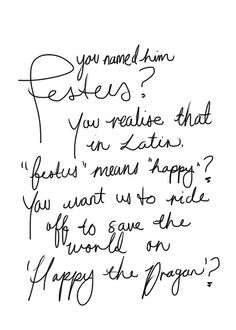 you named him
Festus?
You realise that
in Latin,
"festus" means "happy"?
You want us to ride
off to save the
world on
'Happy the Dragon'?